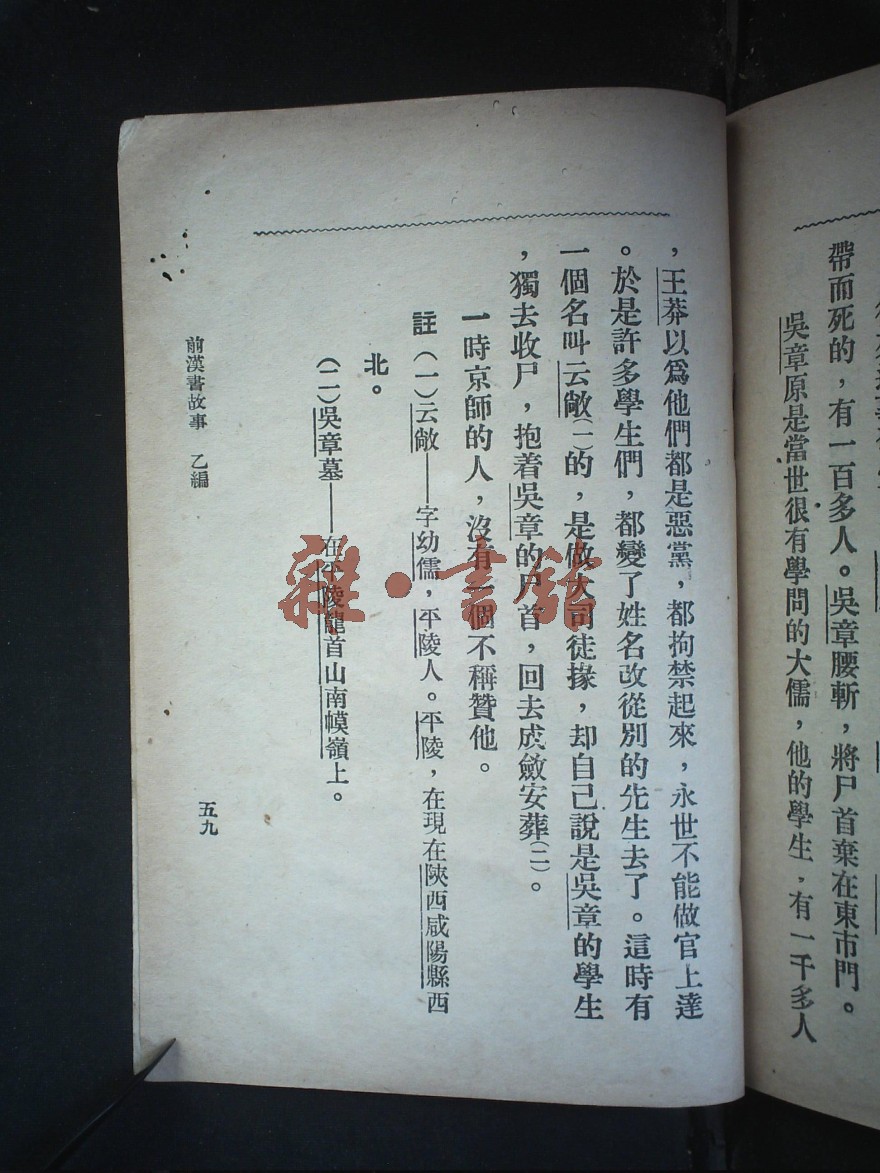 帶而死的，有一百多人。吳章腰斬，將尸首棄在東市門。
吳章原是當世很有學問的大儒，他的學生，有一千多人
，王莽以爲他們都是惡黨，都拘禁起來，永世不能做官上達
。於是許多學生們，都變了姓名改從別的先生去了。這時有
一個名叫云敞(一)的，是做大司徒掾，却自己說是吳章的學生
，獨去收尸，抱着吳章的尸首，回去成斂安葬(二)。
一時京師的人，沒有一個不稱贊他。
註（一）云敞——字幼儒，平陵人。平陵，在現在陝西咸陽縣西
北。
（二）吳章墓——在平陵龍首山南幙嶺上。
前漢書故事　乙編
五九
雜·書館